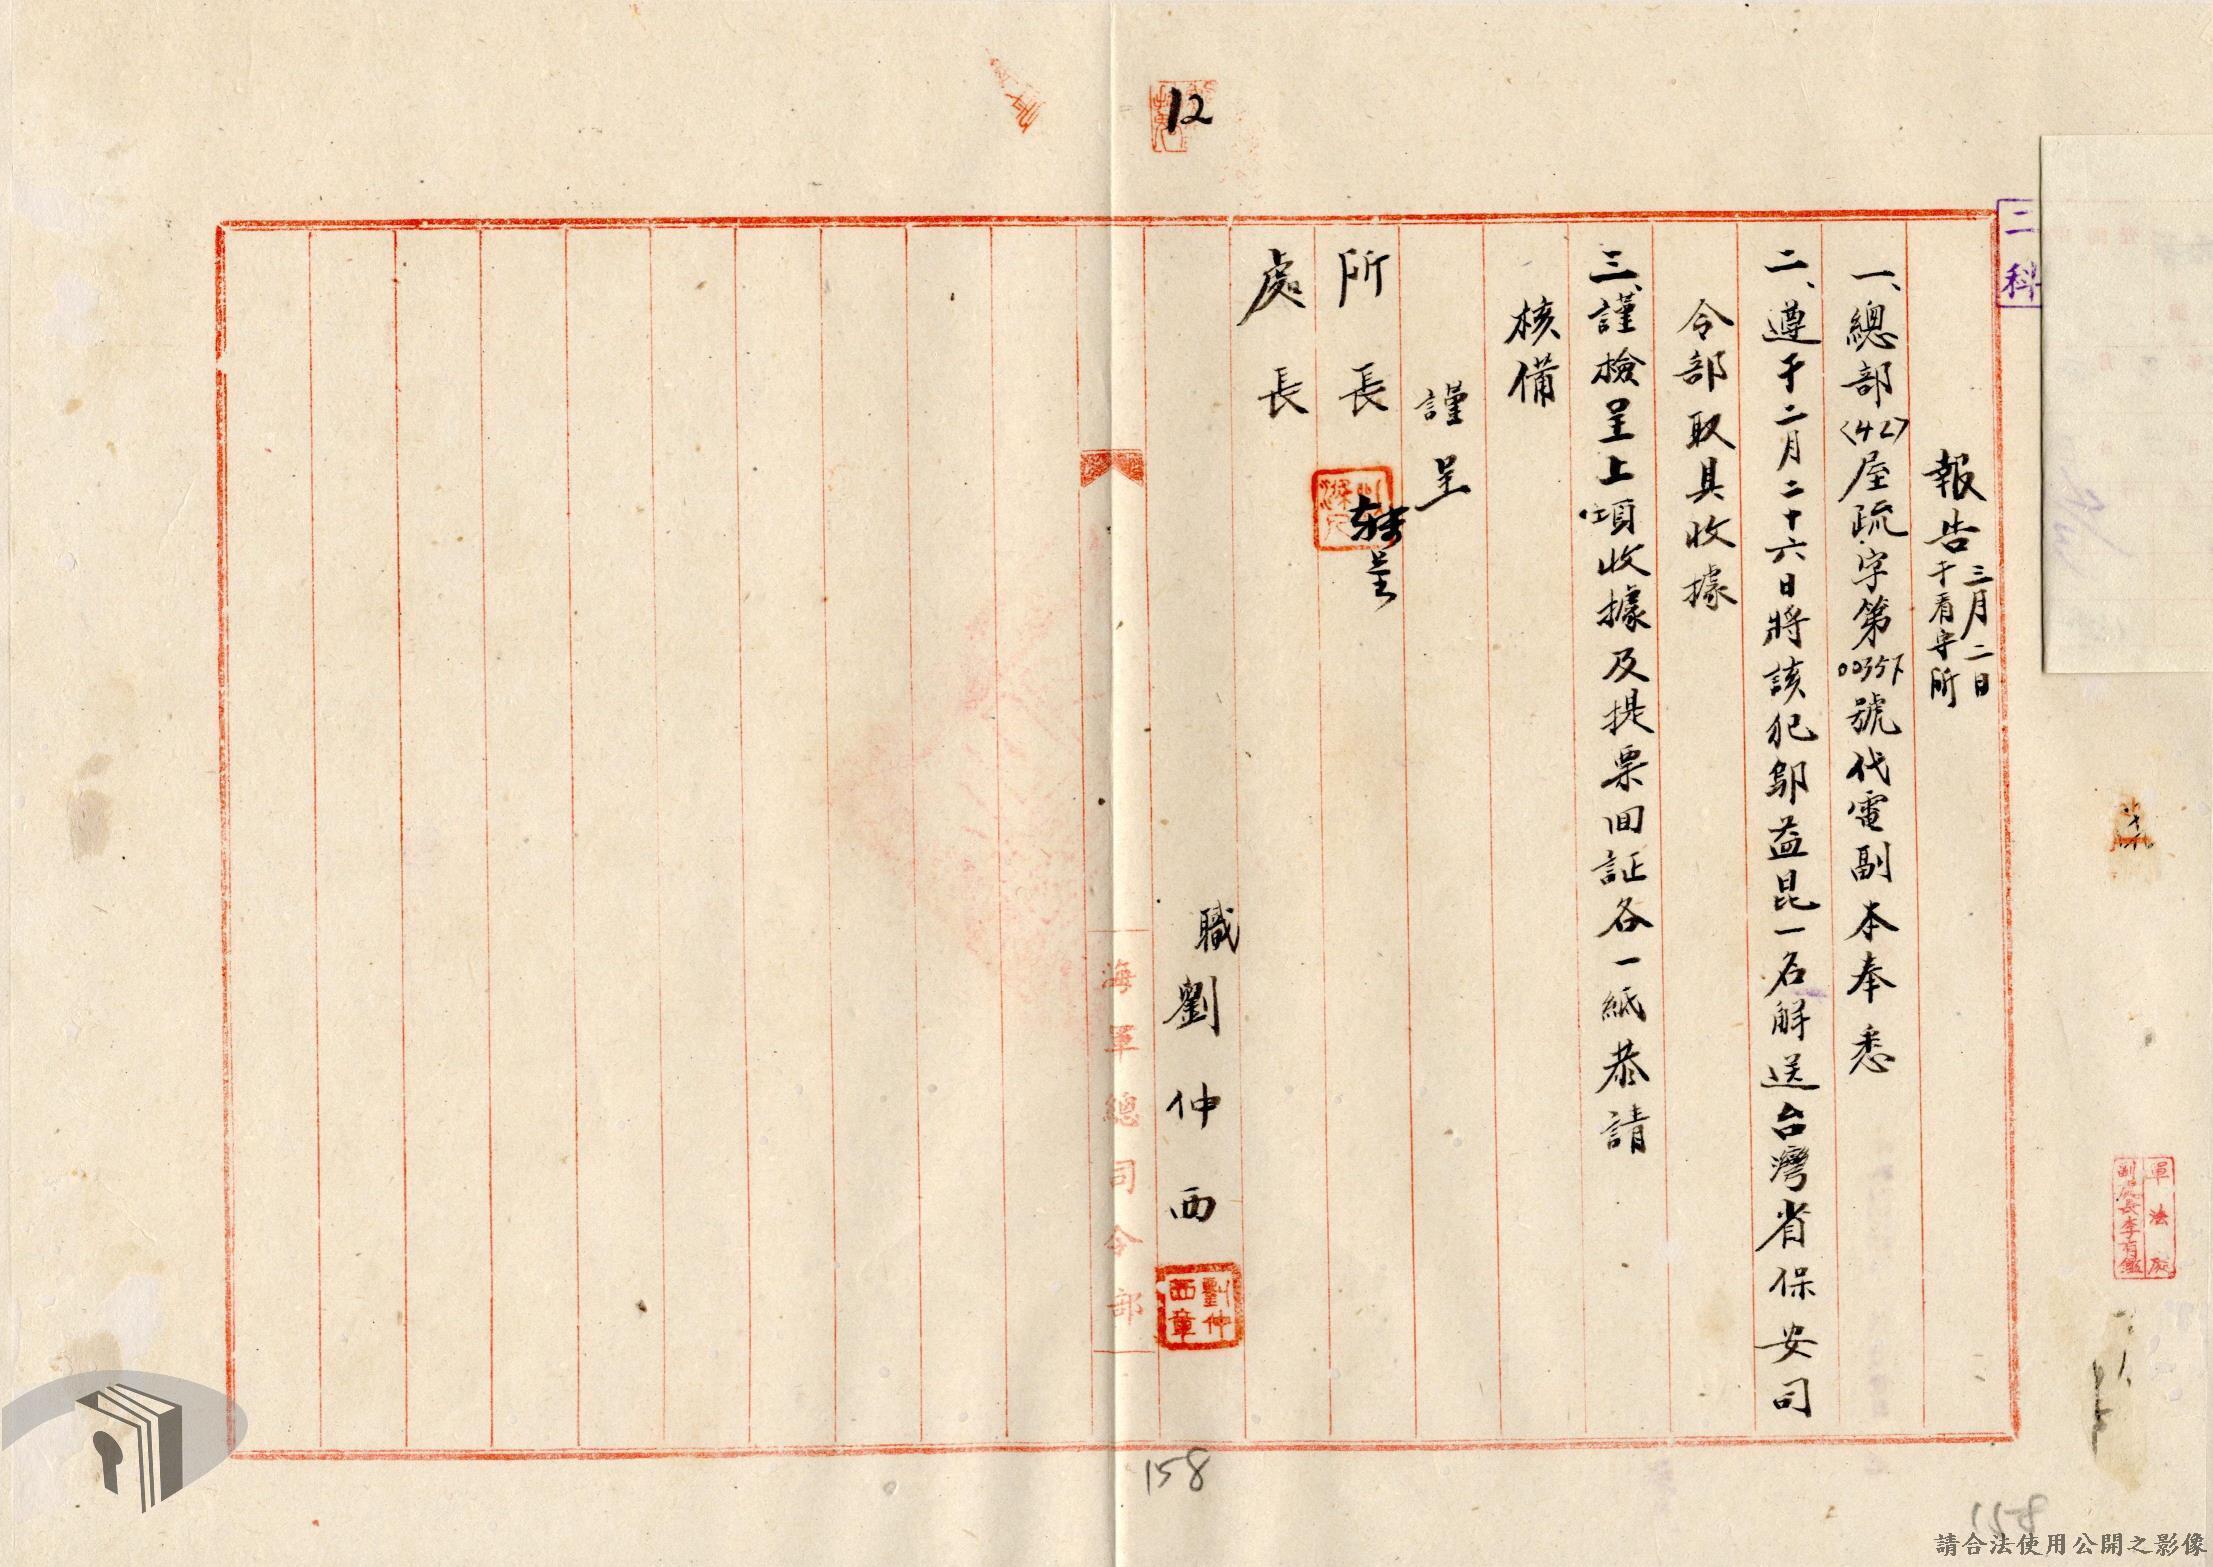 12
二科
報告 三月二日
于看守所
一、總部(42)屋疏字第00357號代電副本奉悉
二、遵于二月二十六日將該犯鄔益昆一名解送台灣省保安司
令部取具收據
三、謹檢呈上項收據及提票回証各一紙恭請
核備
謹呈
所長
轉呈
處長
職劉仲西
劉仲西章
海軍總司令部
軍法處
副處長李有鑑
158
158
請合法使用公開之影像